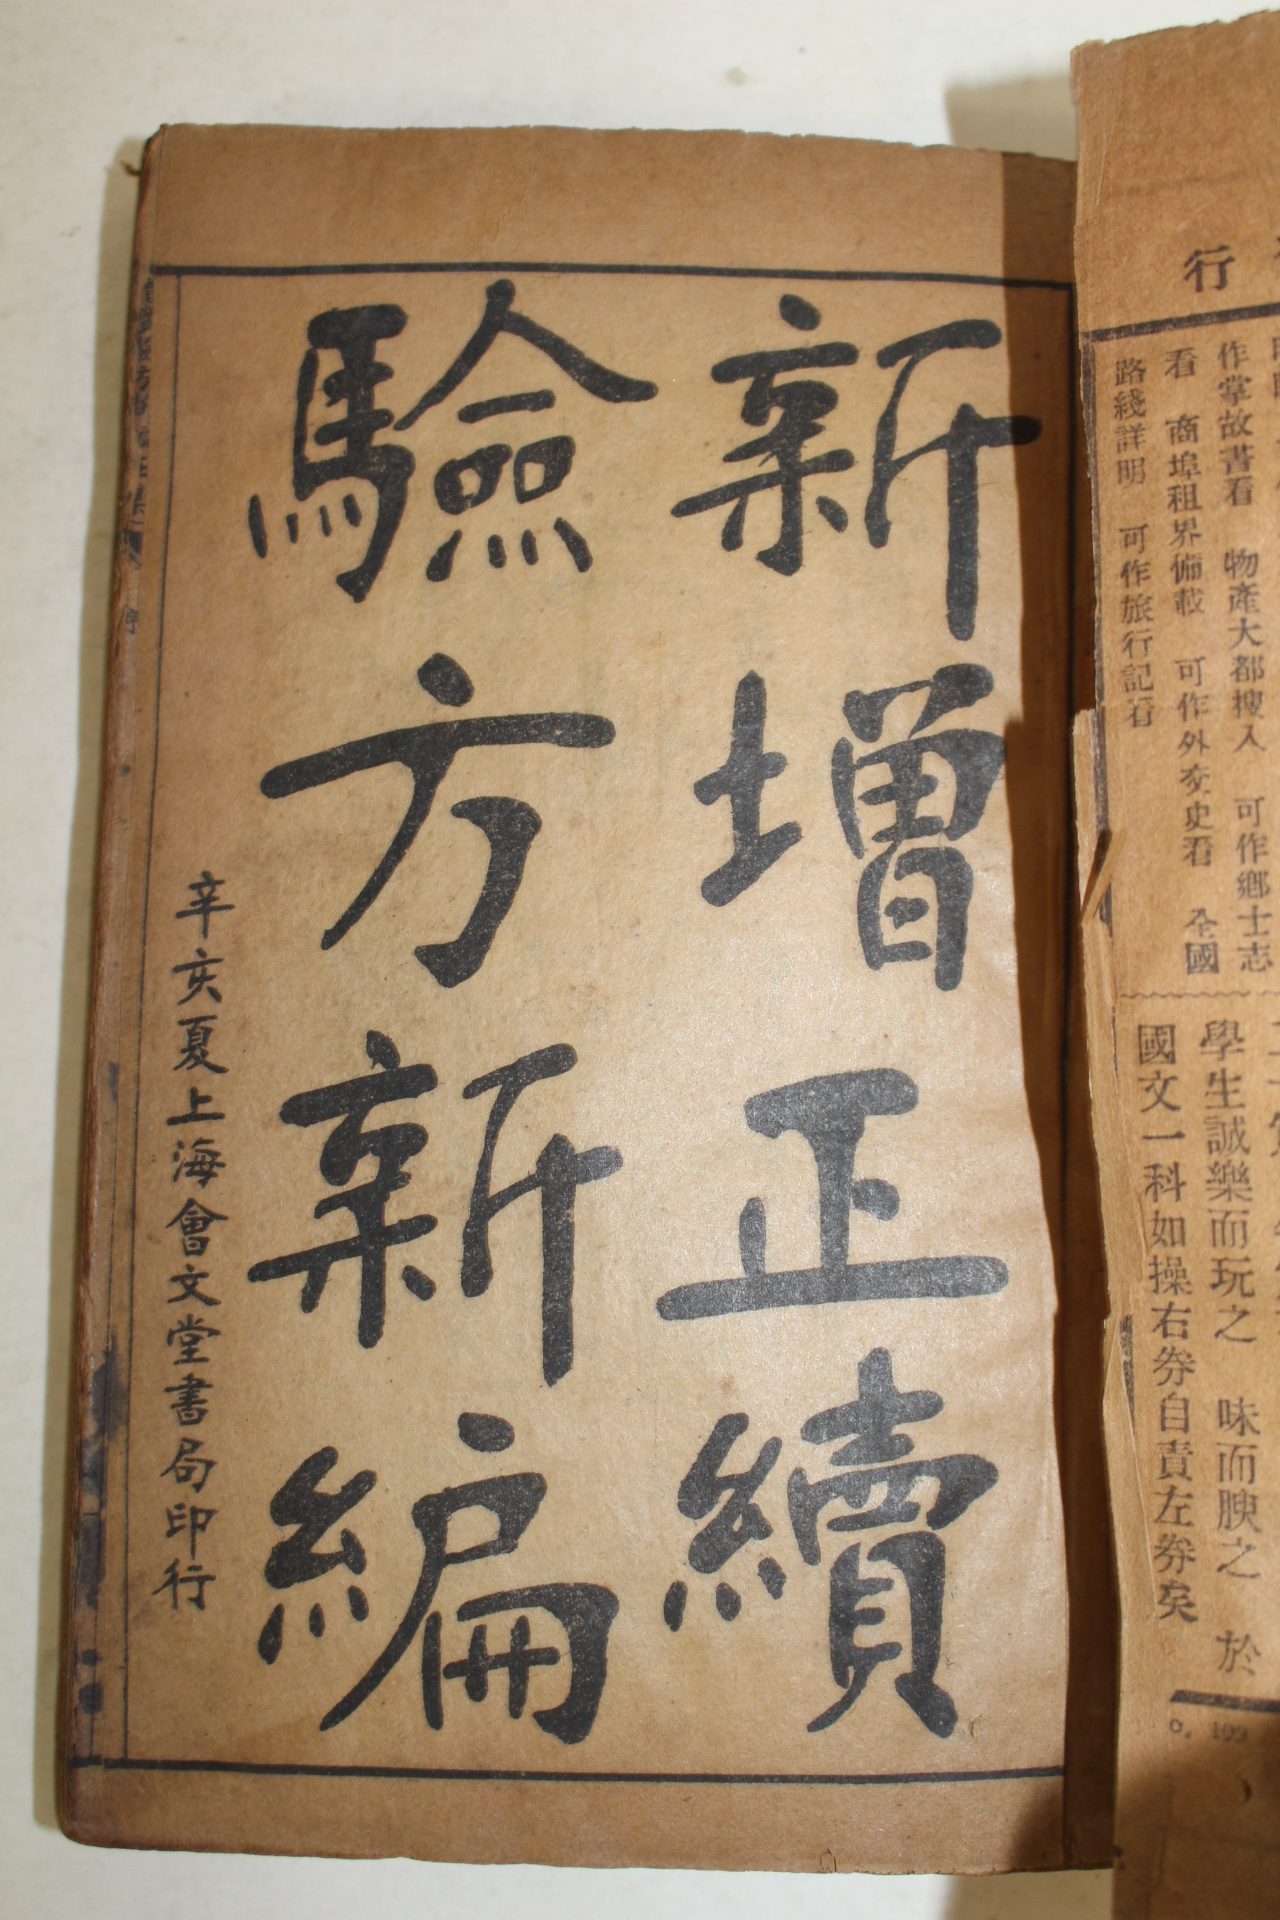 行
作掌故書看 物產大都搜入 可作鄉土志
看 商埠租界備載 可作外交史看 全國
路綫詳明 可作旅行記看
學生誠樂而玩之 味而腴之 於
國文一科如操右券自責左券矣
新增正續
驗方新編
辛亥夏上海會文堂書局印行